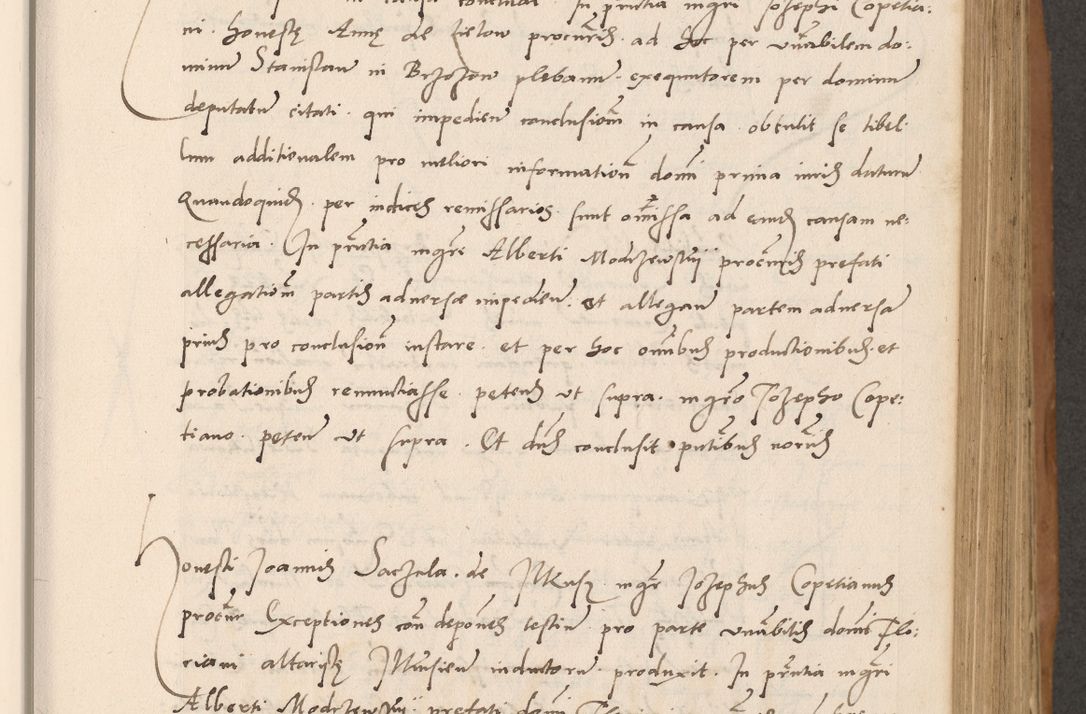 in causa concludi. In pñtia mgri Josephi Copetia:
ni. Honestę Annę de procuris. ad hoc per vnabilem do:
minum Stanislaum in Brzozow plebanum. exequutorem per dominum
deputatum citati. qui impedien conclusionem in causa obtulit se libel:
lum additionalem pro meliori information domi prima iuris daturum
Quandoquidem. per iudices remissarios. sunt omissa ad eandem causam ne:
cessaria. In pñtia mgri Alberti Modrzewskii procuris prefati
allegationem partis adversæ impedien. et allegan partem adversam
prius pro conclusion instare. et per hoc omnibus productionibus. et
probationibus renuntiasse. petens ut supra. mgro Josepho Cope:
tiano. peten ut supra. Et dns conclusit. pñtibus
Honesti Joannis Saczula. de mgr Josephus Copetianus
procur Exceptiones con depones testium pro parte vnabilis domi Flo:
riani altaristę inductorum. produxit. In pñtia mgri
Alberti Modrzewskii prefati domi